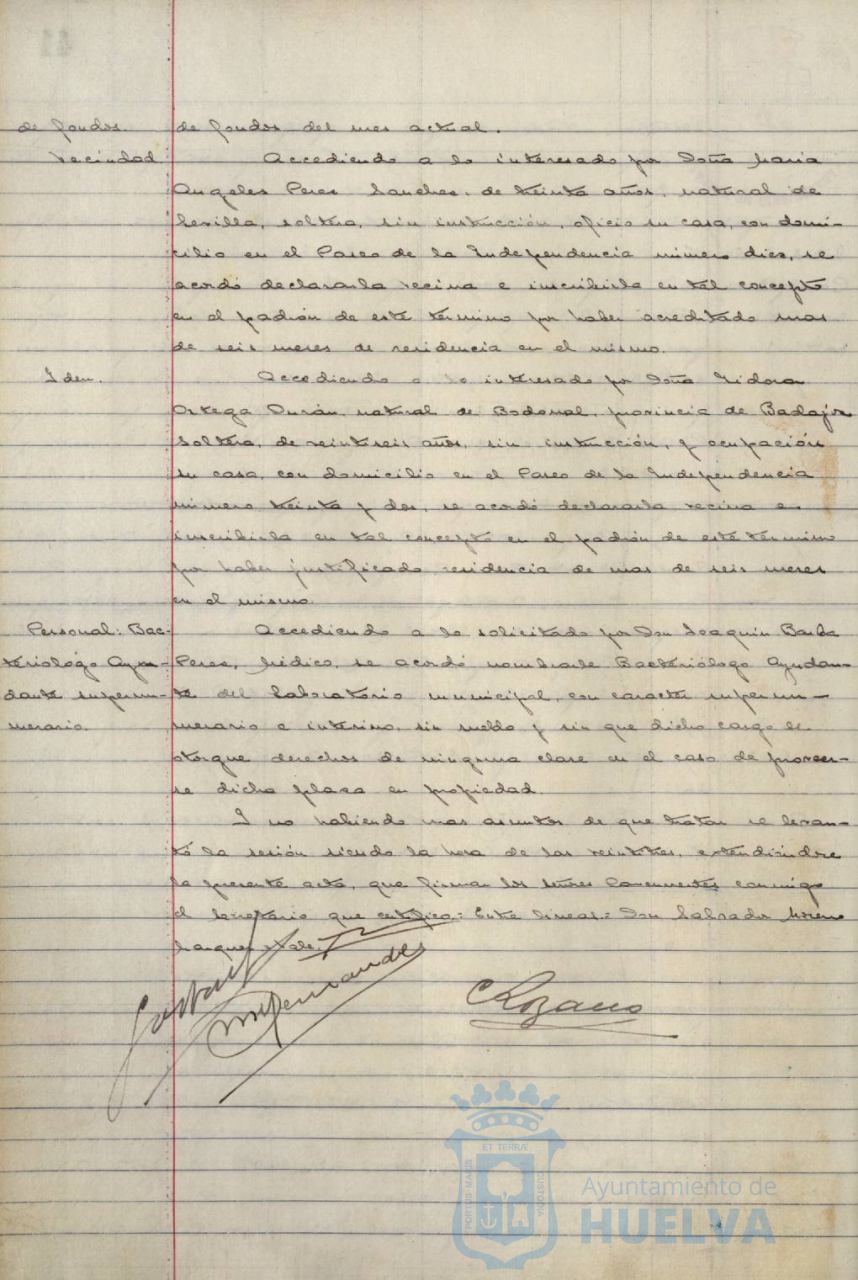 de fondos.
de fondos del mes actual.
Vecindad
Accediendo a lo interesado por Doña Maria
Angeles Peres Sanches, de treinta años, natural de
Sevilla, soltera, sin instrucción, oficio su casa, con domi-
cilio en el Paseo de la Independencia número diez, se
acordó declararla vecina e inscribirla en tal concepto
en el padrón de este término por haber acreditado mas
de seis meses de residencia en el mismo.
Iden.
Accediendo a lo interesado por Doña Isidora
Ortega Durán, natural de Bodonal, provincia de Badajoz
soltera, de veintiseis años, sin instrucción, y ocupación
su casa, con domicilio en el Paseo de la Independencia
número treinta y dos, se acordó declararla vecina e
inscribirla en tal concepto en el padrón de este término
por haber justificado residencia de mas de seis meses
en el mismo.
Personal: Bac-
teriológo Ayu-
dante supernu-
merario.
Accediendo a lo solicitado por Don Joaquin Barba
Peres, Médico, se acordó nombrarle Bacteriólogo Ayudan-
te del Laboratorio municipal, con caracter supernu-
merario e interino, sin sueldo y sin que dicho cargo le
otorgue derechos de ninguna clase en el caso de proveer-
se dicha plaza en propiedad.
I no habiendo mas asuntos de que tratar se levan-
tó la sesión siendo la hora de las veintitres, extendiéndose
la presente acta, que firman los señores Concurrentes conmigo
el Secretario que certifico.= Entre lineas.= Don Salvador Moreno
Marques.= Vale.
M Hernandez
C Lozano
ET TERRÆ
PORTUS MARIS
CUSTODIA
Ayuntamiento de
HUELVA